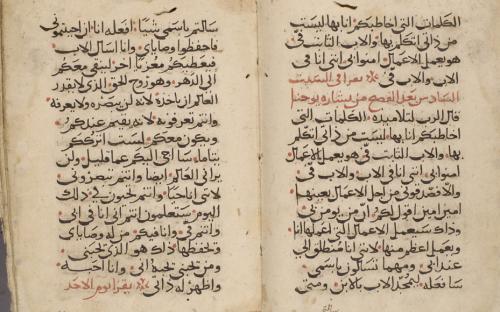 الكلمات التى اخاطبكم انا بها ليست
من ذاتى اتكلم بها والاب الثابت فى
هو يعمل الاعمال امنوا بى انى انا فى
الاب والاب فى يقرا فى السبت
السادس بعد الفصح من بشاره يوحنا
قال الرب لتلاميذه الكلمات التى
اخاطبكم انا بها ليست من ذاتى اتكلم
بها والاب الثابت فى هو يعمل الاعمال
امنوا بى انى انا فى الاب والاب فى
والا فصدقونى من اجل الاعمال بعينها
امين امين اقول لكم ان من يومن بى
وذاك سيعمل الاعمال التى اعملها انا
ويعمل اعظم منها لاننى انا منطلق الى
عند ابى ومهما تسالون باسمى
سافعله ليتمجد الاب بالابن ومتى
سالتم باسمى شيئا افعله انا ان احببتمونى
فاحفظوا وصاياى وانا اسال الاب
فيعطيكم معزيا اخر ليبقى معكم
الى الدهر وهو روح الحق الذى لا يقدر
العالم ان ياخذه لانه لن يبصره ولا يعرفه
وانتم تعرفونه لانه يقيم عندكم
ويكون معكم لست اترككم
يتاما ساجى اليكم عما قليل ولن
يرانى العالم ايضا وانتم تبصرونى
لاننى انا حيا وانتم تحيون فى ذلك
اليوم ستعلمون انتم انى انا فى ابى
وانتم فى وانا فيكم من له وصاياى
وتحفظها ذاك هو الذى يحبنى
ومن يحبنى يحبه ابى وانا احبه
واظهر له ذاتى يقرا يوم الاحد